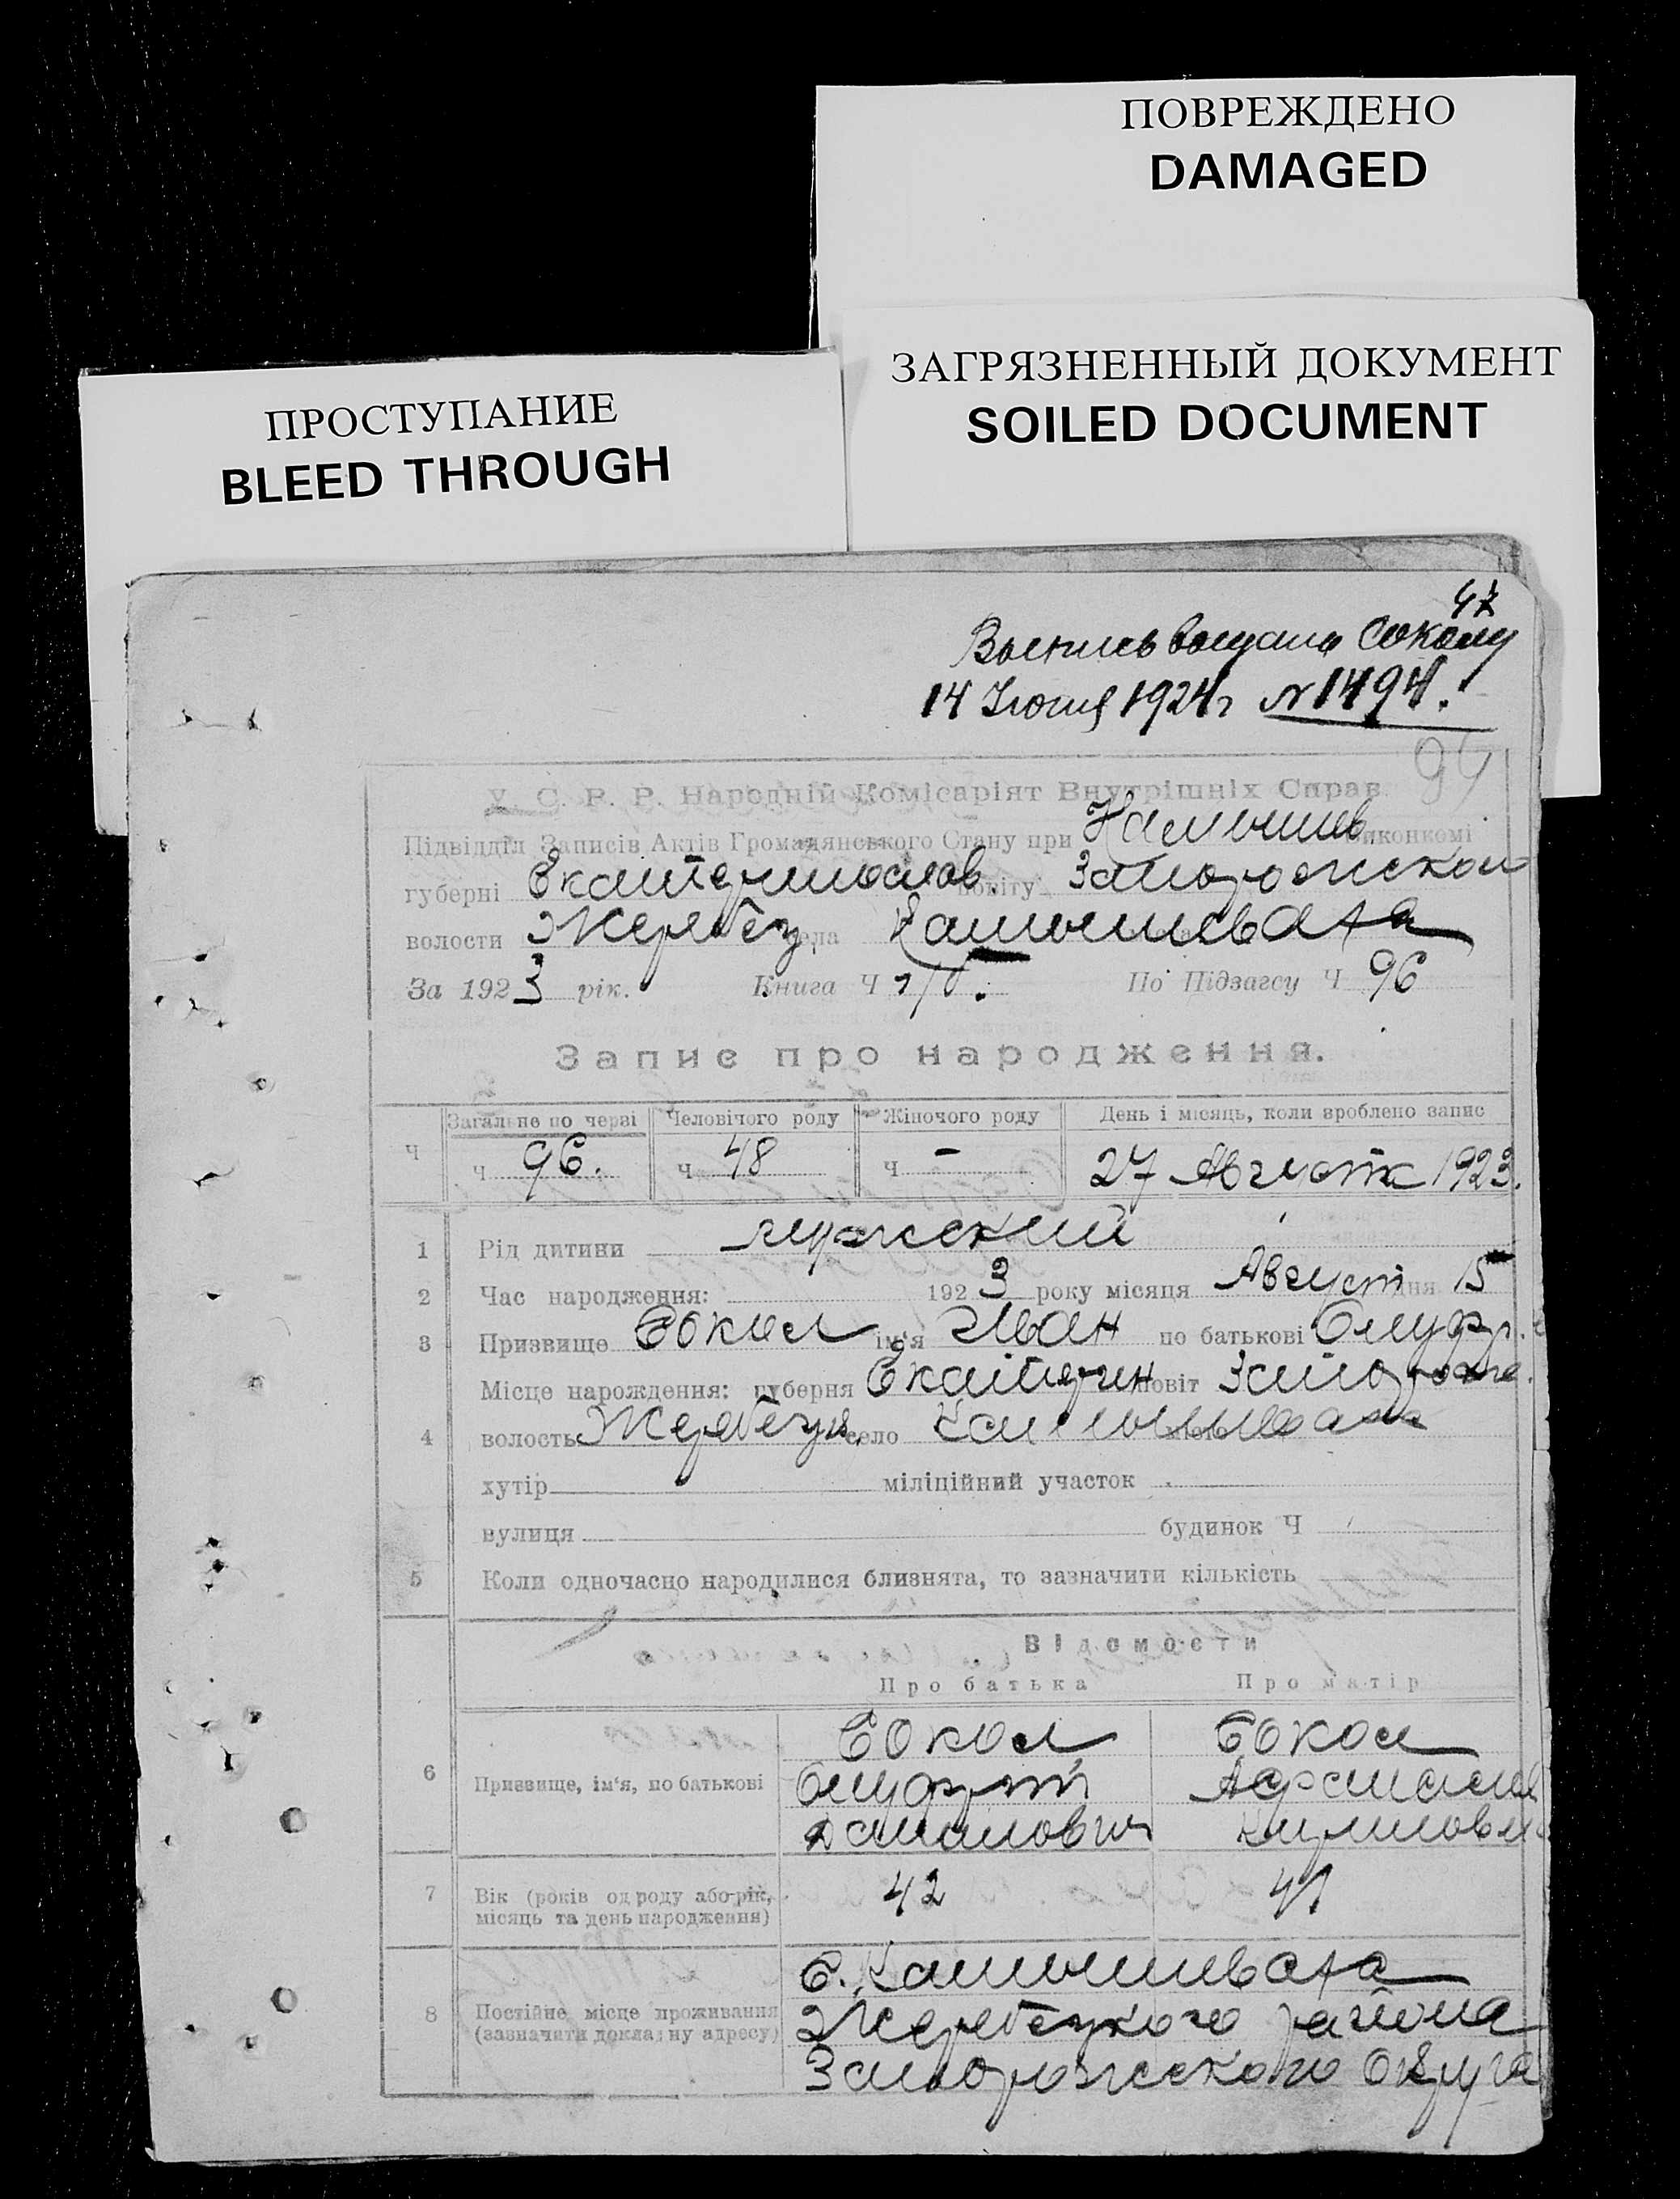 ПОВРЕЖДЕНО
DAMAGED
ЗАГРЯЗНЕННЫЙ ДОКУМЕНТ
SOILED DOCUMENT
ПРОСТУПАНИЕ
BLEED THROUGH
47
Выпись выдана Соколу
14 Июля 1924 г №1494.
94
У. С. Р. Р. Народній Комісаріят Внутрішніх Справ.
Підвідділ Записів Актів Громадянського Стану при Камышев виконкомі
губерні Екатеринослав повіту Запорожского
волости Жеребец села Камышеваха
За 1923 рік. Книга Ч По Підзагсу Ч 96
Запис про народження.
Загальне по черзі Человічого роду Жіночого роду День і місяць, коли вроблено запис
Ч ч 96. ч 48 ч - 27 Августа 1923.
1 Рід дитини мужский
2 Час народження: 1923 року місяця Август дня 15
3 Призвище Сокол ім'я Иван по батькові Онуфр.
Місце нарождення: губерня Екатерин повіт Запорож.
4 волость Жеребецк. село Камышеваха
хутір міліційний участок
вулиця будинок Ч
5 Коли одночасно народилися близнята, то зазначити кількість
Відомости
Про батька Про матір
Сокол Сокол
6 Призвище, ім'я, по батькові Онуфрий
7 Вік (років од роду або рік, 42 41
місяць та день народження)
С. Камышеваха
8 Постійне місце проживання Жеребецкого района
(зазначити докладну адресу)
Запорожского Округа